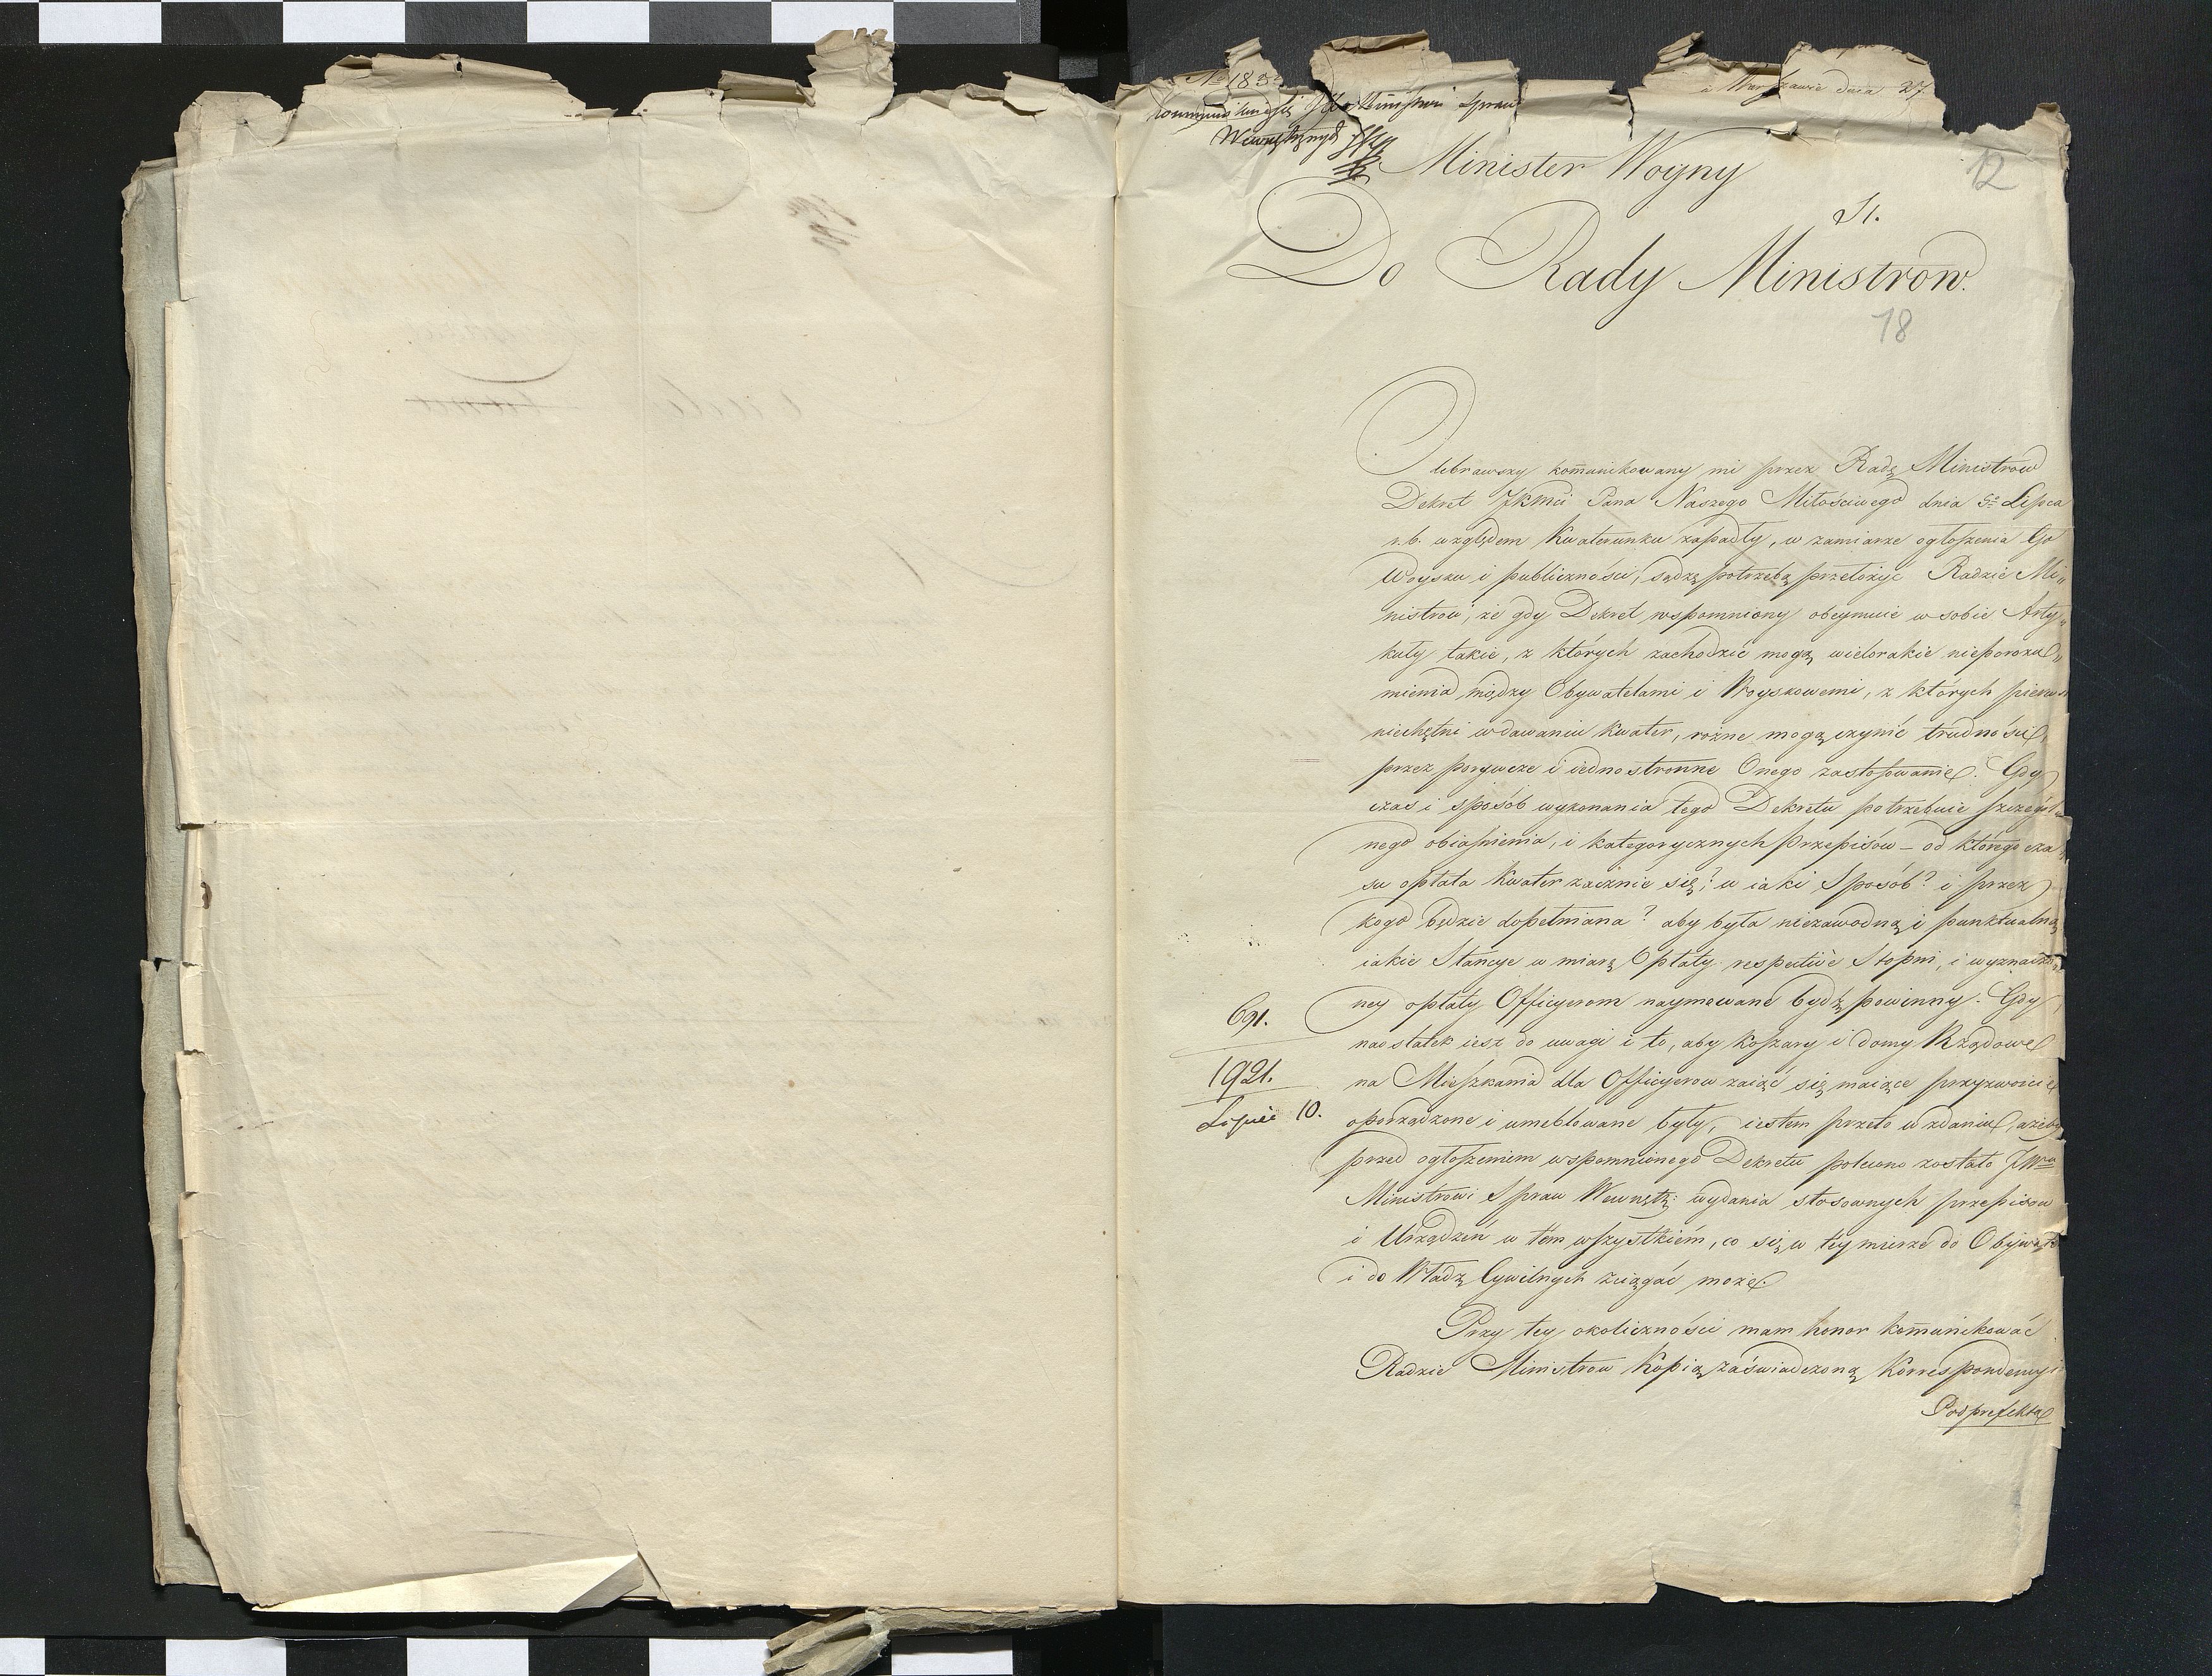 w Warszawie dnia 27.
Wewnętrznych
Minister Woyny
12
51.
Do Rady Ministrow.
18
Odebrawszy kom̄unikowany mi przez Radę Ministrow
Dekret JKMci Pana Naszego Miłościwego dnia 5º Lipca
r. b. względem Kwaterunku zapadły, w zamiarze ogłoszenia Go
Woysku i publiczności, sądzę potrzebą przełożyć Radzie Mi„
nistrow, że gdy Dekret wspomniony obeymuie w sobie Arty„
kuły takie, z których zachodzić mogą wielorakie nieporozu„
mienia między Obywatelami i Woyskowemi, z których pierwsi
niechętni w dawaniu Kwater, rożne mogą czynić trudności,
przez porywcze i iednostronne Onego zastosowanie. Gdy
czas i sposób wykonania tego Dekretu potrzebuie szczegól„
nego obiaśnienia, i kategorycznych przepisów – od którego cza„
su opłata Kwater zacznie się? w iaki Sposób? i przez
kogo będzie dopełniana? aby była niezawodną i punktualną
iakie Stancye w miarę Opłaty respective Stopni, i wyznaczo„
ney opłaty Officyerom naymowane bydź powinny. Gdy
naostatek iest do uwagi i to, aby koszary i domy Rządowe
na Mieszkania dla Officyerow zaiąć się maiące przyzwoicie
oporządzone i umeblowane były, iestem przeto w zdaniu, ażeby
przed ogłoszeniem wspomnionego Dekretu polecono zostało JWmu
Ministrowi Spraw Wewnętz: wydania stosownych przepisow
i Urządzeń w tem wszystkiém, co się w tey mierze do Obywateli
i do Władz Cywilnych ściągać może.
691.
1921.
Lipiec 10.
Przy tey okoliczności mam honor kom̄unikować
Radzie Ministrow Kopią zaświadczoną Korrespondencyi
Podprefekta